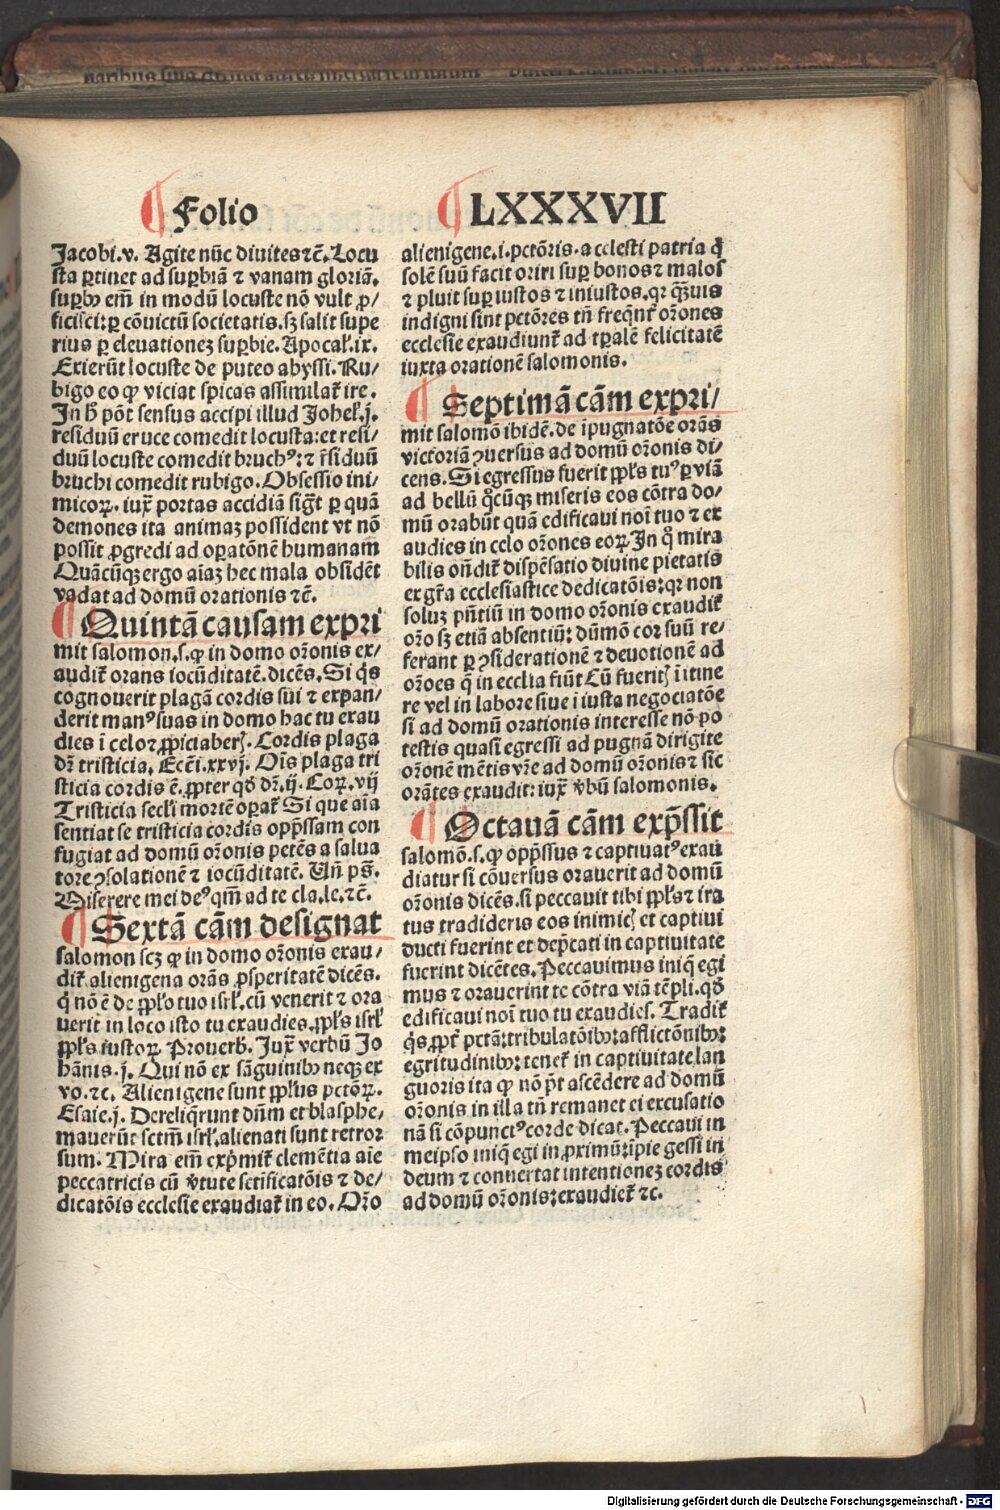 Folio LXXXXVII
Jacobi.v. Agite nūc diuites ⁊c̄. Locu
sta ꝑtinet ad suꝑbiā ⁊ vanam gloriā.
suꝑbꝰ em̄ in modū locuste nō vult ꝓ/
ficisci: ꝑ cōuictū societatis. sꝫ salit supe
rius ꝑ eleuationeꝫ suꝑbie. Apocal̄. ix.
Exierūt locuste de puteo abyssi. Ru/
bigo eo ꝙ viciat spicas assimilat̄ ire.
In h̄ pōt sensus accipi illud Johel̄. j.
residuū eruce comedit locusta: et resi/
duū locuste comedit bruchꝰ: ⁊ r̄siduū
bruchi comedit rubigo. Obsessio ini/
micoꝝ. iux̄ portas accidiā siḡt ꝑ quā
demones ita animaꝫ possident vt nō
possit ꝓgredi ad oꝑatōnē humanam
Quācūqꝫ ergo aīaꝫ hec mala obsidēt
vadat ad domū orationis ⁊c̄.
Quintā causam expri
mit salomon. s. ꝙ in domo or̄onis ex/
audit̄ orans iocūditatē. dicēs. Si q̄s
cognouerit plagā cordis sui ⁊ expan/
derit manꝰ suas in domo hac tu exau
dies ī celo ⁊ ꝓpiciaberꝭ. Cordis plaga
dr̄ tristicia. Ecc̄i. xxvj. Oīs plaga tri
sticia cordis ē. ꝓpter qd̄ dr̄. ij. Coꝝ. vij
Tristicia secl̄i mortē oꝑat̄ Si que aīa
sentiat se tristicia cordis opp̄ssam con
fugiat ad domū or̄onis petēs a salua
tore ꝯsolationē ⁊ iocūditatē. Un̄ ps̄.
Miserere mei deꝰ qm̄ ad te cla. le. ⁊c̄.
Sextā cām designat
salomon scꝫ ꝙ in domo or̄onis exau/
dit̄. alienigena orās ꝓsperitatē dicēs.
q̄ nō ē de ppl̄o tuo isrl̄. cū venerit ⁊ ora
uerit in loco isto tu exaudies. ppl̄s isrl̄
ppl̄s iustoꝝ. Prouerb̄. Jux̄ verbū Jo
hānis. j. Qui nō ex sāguinibꝰ neqꝫ ex
vo. ⁊c. Alienigene sunt ppl̄us pctōꝝ.
Esaie. j. Dereliq̄runt dn̄m et blasphe/
mauerūt sctm̄ isrl̄. alienati sunt retror
sum. Mira em̄ exp̄mit̄ clemētia aīe
peccatricis cū v̄tute sctificatōis ⁊ de/
dicatōis ecclesie exaudiat̄ in eo. Or̄o
alienigene. i. pctōris. a celesti patria q̄
solē suū facit oriri suꝑ bonos ⁊ malos
⁊ pluit suꝑ iustos ⁊ iniustos. qꝛ q̄ꝫuis
indigni sint pctōres tn̄ freqn̄t or̄ones
ecclesie exaudiunt̄ ad tp̄alē felicitatē
iuxta orationē salomonis.
Septimā cām expri/
mit salomō ibidē. de īpugnatōe orās
victoriā ꝯuersus ad domū or̄onis di/
cens. Si egressus fuerit ppl̄s tuꝰ ꝑ viā
ad bellū q̊cūqꝫ miseris eos cōtra do/
mū orabūt quā edificaui noī tuo ⁊ ex
audies in celo or̄ones eoꝝ In q̊ mira
bilis on̄dit̄ dispēsatio diuine pietatis
ex gr̄a ecclesiastice dedicatōis: qꝛ non
soluꝫ pn̄tiū in domo or̄onis exaudit̄
or̄o sꝫ etiā absentiū: dūmō cor suū re/
ferant ꝑ ꝯsiderationē ⁊ deuotionē ad
or̄oes q̄ in ecclia fiūt Cū fueritꝭ ī itine
re vel in labore siue ī iusta negociatōe
si ad domū orationis interesse nō po
testis quasi egressi ad pugnā dirigite
or̄onē mētis vr̄e ad domū or̄onis ⁊ sic
orātes exaudit: iux̄ v̄bū salomonis.
Octauā cām exp̄ssit
salomō. s. ꝙ opp̄ssus ⁊ captiuatꝰ exau
diatur si cōuersus orauerit ad domū
or̄onis dicēs. si peccauit tibi ppl̄s ⁊ ira
tus tradideris eos inimicꝭ et captiui
ducti fuerint et dep̄cati in captiuitate
fuerint dicētes. Peccauimus iniq̄ egi
mus ⁊ orauerint te cōtra viā tēpli. qd̄
edificaui noī tuo tu exaudies. Tradit̄
q̄s ꝓpt̄ pctā: tribulatōibꝰ: afflictōnibꝰ:
egritudinibꝰ: tenet̄ in captiuitate lan
guoris ita ꝙ nō p̄t ascēdere ad domū
or̄onis in illa tn̄ remanet ei excusatio
nā si cōpunctꝰ corde dicat. Peccaui in
meipso iniq̄ egi in ꝓximū: īpie gessi in
deum ⁊ conuertat intentioneꝫ cordis
ad domū or̄onis: exaudiet̄ ⁊c.
Digitalisierung gefördert durch die Deutsche Forschungsgemeinschaft - DFG